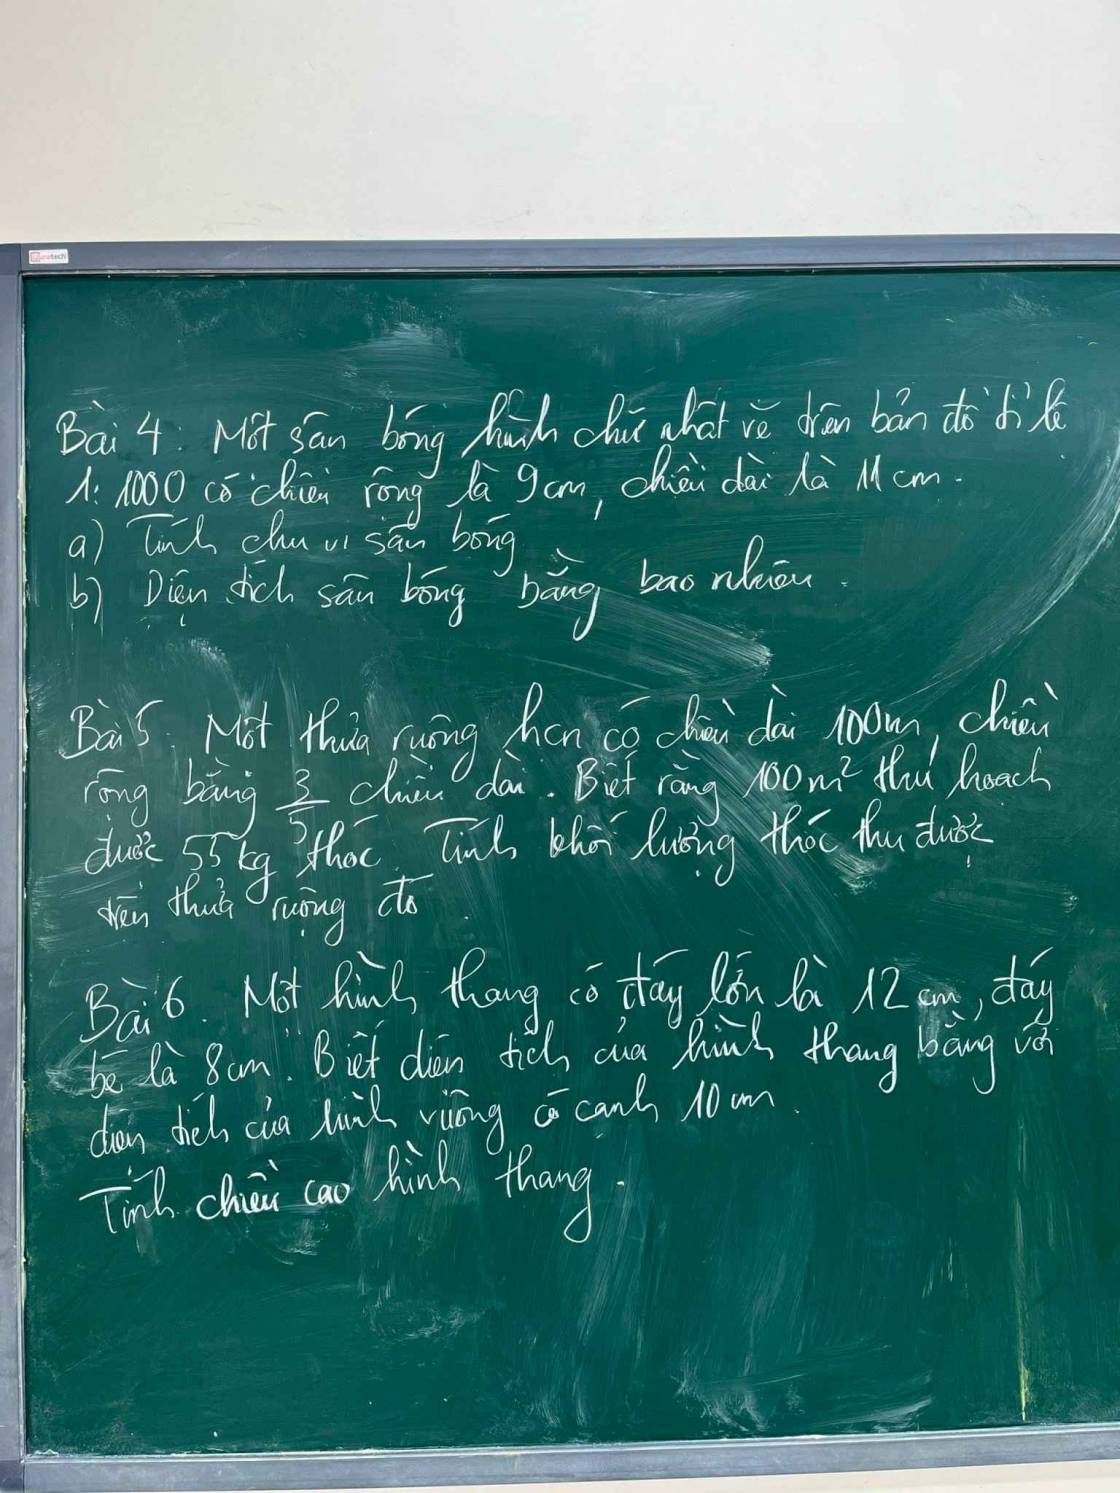 Bài 4: Một sân bóng hình chữ nhật vẽ trên bản đồ tỉ lệ
1:1000 có chiều rộng là 9cm, chiều dài là 11cm.
a) Tính chu vi sân bóng
b) Diện tích sân bóng bằng bao nhiêu.
Bài 5. Một thửa ruộng hcn có chiều dài 100m, chiều
rộng bằng 3/5 chiều dài. Biết rằng 100m² thu hoạch
được 55kg thóc. Tính khối lượng thóc thu được
trên thửa ruộng đó.
Bài 6. Một hình thang có đáy lớn là 12cm, đáy
bé là 8cm. Biết diện tích của hình thang bằng với
diện tích của hình vuông có cạnh 10cm.
Tính chiều cao hình thang.